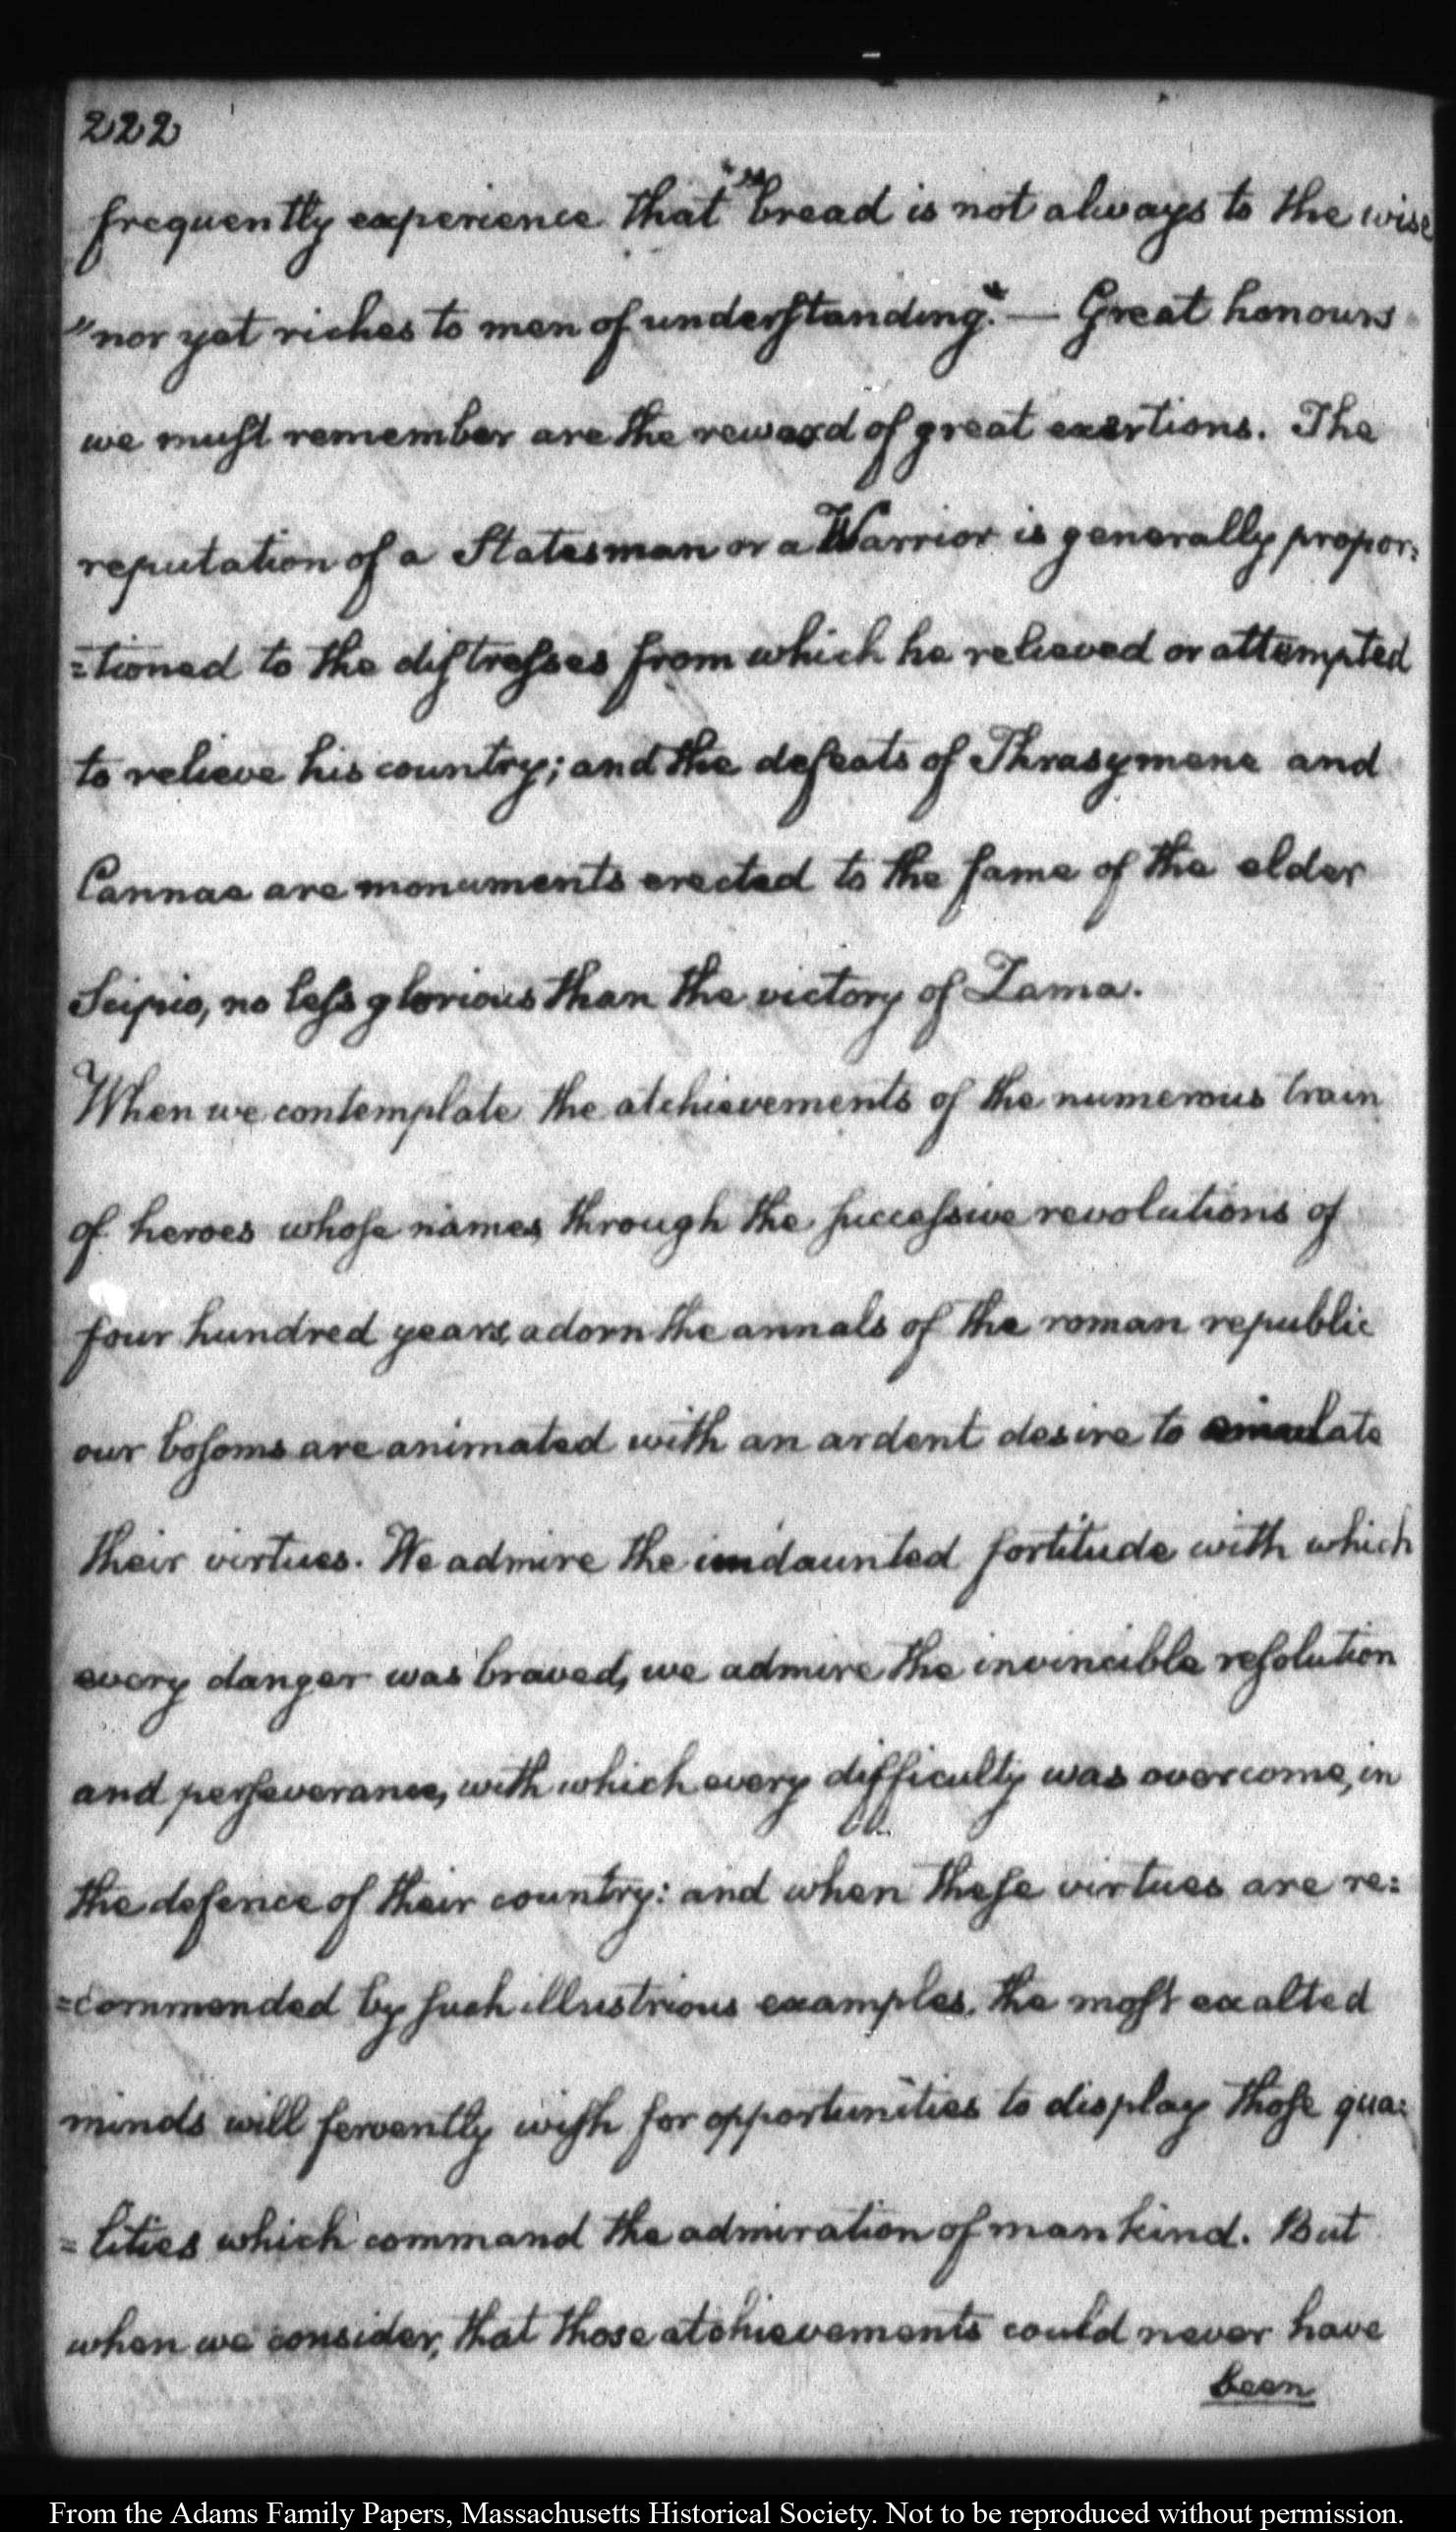 222
frequently experience that "bread is not always to the wise
"nor yet riches to men of understanding." — Great honours
we must remember are the reward of great exertions. The
reputation of a Statesman or a Warrior is generally propor=
=tioned to the distresses from which he relieved or attempted
to relieve his country; and the defeats of Thrasymene and
Cannae are monuments erected to the fame of the elder
Scipio, no less glorious than the victory of Zama.
When we contemplate the atchievements of the numerous train
of heroes whose names, through the successive revolutions of
four hundred years, adorn the annals of the roman republic
our bosoms are animated with an ardent desire to emulate
their virtues. We admire the undaunted fortitude with which
every danger was braved, we admire the invincible resolution
and perseverance, with which every difficulty was overcome, in
the defence of their country: and when these virtues are re=
=commended by such illustrious examples, the most exalted
minds will fervently wish for opportunities to display those qua=
=lities which command the admiration of mankind. But
when we consider, that those atchievements could never have
been
From the Adams Family Papers, Massachusetts Historical Society. Not to be reproduced without permission.